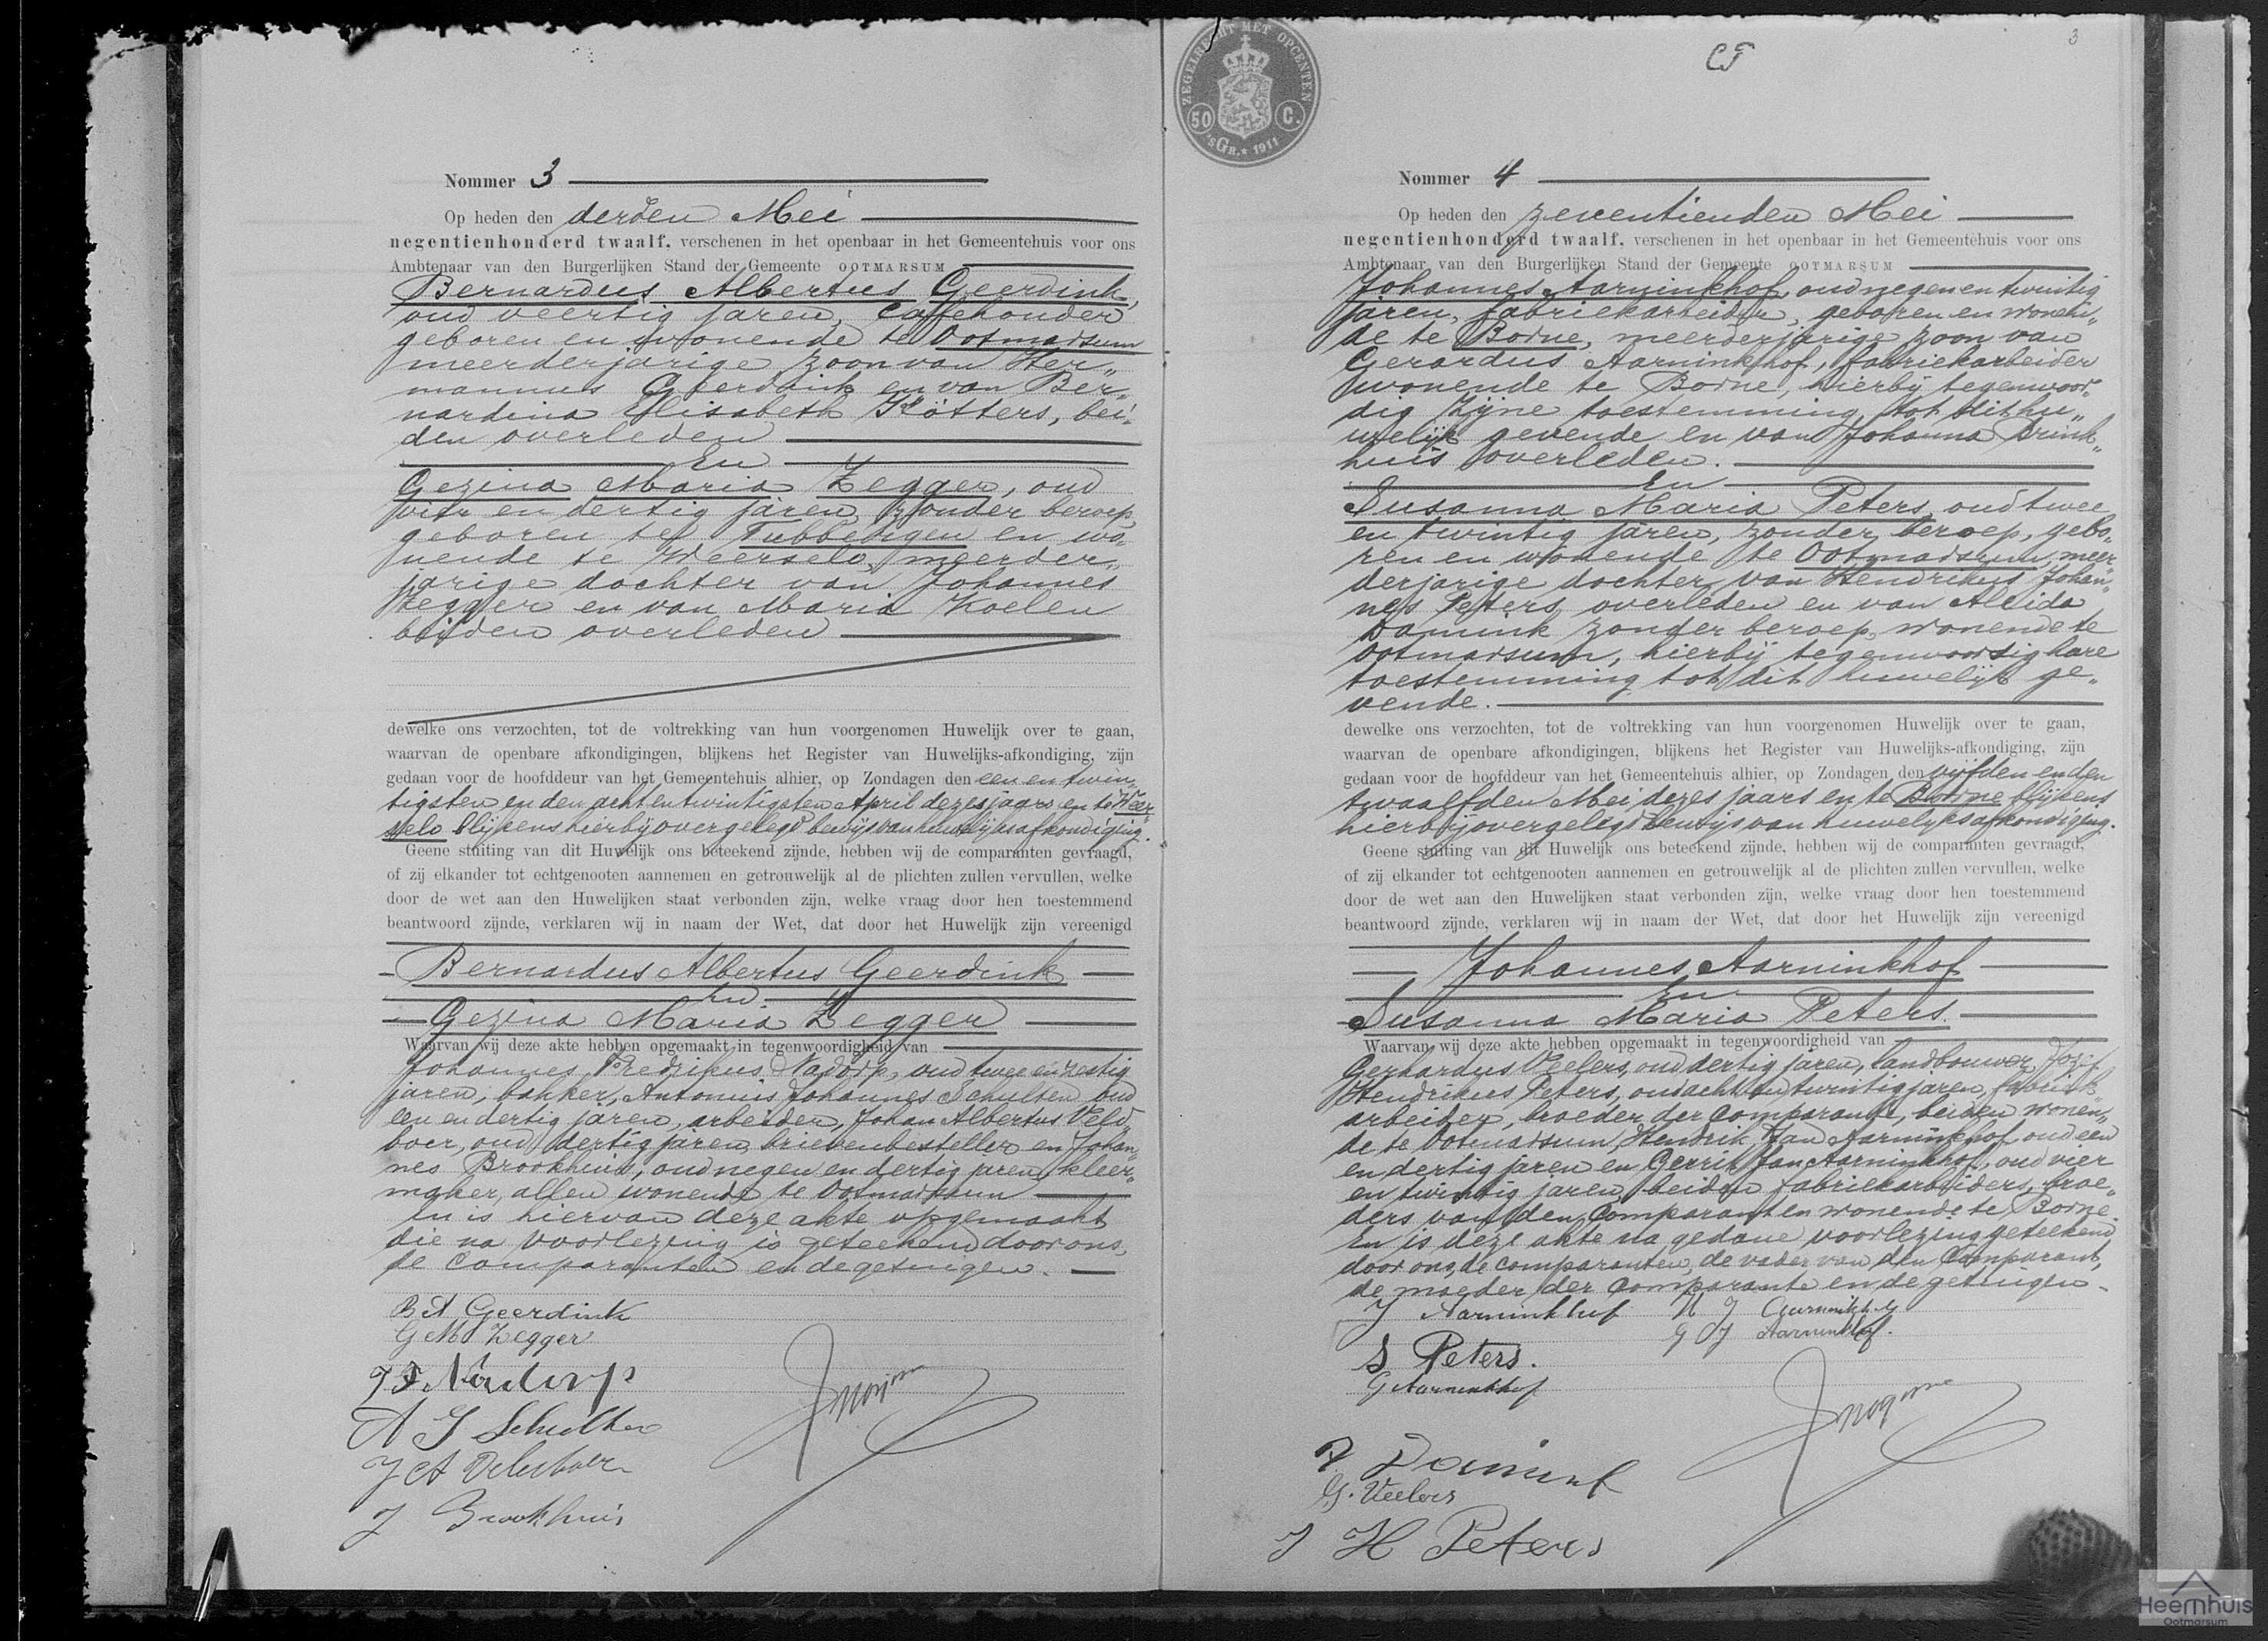 Nommer 3
Op heden den derden Mei
negentienhonderd twaalf, verschenen in het openbaar in het Gemeentehuis voor ons
Ambtenaar van den Burgerlijken Stand der Gemeente OOTMARSUM
Bernardus Albertus Geerdink,
oud veertig jaren, Caffehouder
geboren en wonende te Ootmarsum
meerderjarige zoon van Her„
mannus Geerdink en van Ber„
nardina Elisabeth Kötters, bei„
den overleden
En
Gezina Maria Zegger, oud
vier en dertig jaren zonder beroep,
geboren te Tubbergen en wo„
nende te Weerselo, meerder„
jarige dochter van Johannes
Zegger en van Maria Koelen
beiden overleden
dewelke ons verzochten, tot de voltrekking van hun voorgenomen Huwelijk over te gaan,
waarvan de openbare afkondigingen, blijkens het Register van Huwelijks-afkondiging, zijn
gedaan voor de hoofddeur van het Gemeentehuis alhier, op Zondagen den een en twin„
tigsten en den achtentwintigsten April dezes jaars en te Weer„
selo blijkens hierbij overgelegd bewijs van huwelijksafkondiging.
Geene stuiting van dit Huwelijk ons beteekend zijnde, hebben wij de comparanten gevraagd,
of zij elkander tot echtgenooten aannemen en getrouwelijk al de plichten zullen vervullen, welke
door de wet aan den Huwelijken staat verbonden zijn, welke vraag door hen toestemmend
beantwoord zijnde, verklaren wij in naam der Wet, dat door het Huwelijk zijn vereenigd
Bernardus Albertus Geerdink
En
Gezina Maria Zegger
Waarvan wij deze akte hebben opgemaakt in tegenwoordigheid van
Johannes Fredrikus Nadorp, oud twee en zestig
jaren, bakker, Antonius Johannes Schulten oud
een en dertig jaren, arbeider, Johan Albertus Veld
boer, oud dertig jaren, brievenbesteller en Johan„
nes Brookhuis, oud negen en dertig jaren, kleer„
maker, allen wonende te Ootmarsum
En is hiervan deze akte opgemaakt
die na voorlezing is geteekend door ons,
de Comparanten en de getuigen.
B A Geerdink
G M Zegger
J F Nadorp
A J Schulten
J A Veldboer
J Brookhuis
ZEGELRECHT MET OPCENTEN
50 C.
'sGR. 1911
3
Nommer 4
Op heden den zeventienden Mei
negentienhonderd twaalf, verschenen in het openbaar in het Gemeentehuis voor ons
Ambtenaar van den Burgerlijken Stand der Gemeente OOTMARSUM
Johannes Aarninkhof, oud negen en twintig
jaren, fabriekarbeider, geboren en wonen„
de te Borne, meerderjarige zoon van
Gerardus Aarninkhof, fabriekarbeider
wonende te Borne, hierbij tegenwoor„
dig zijne toestemming tot dit hu„
welijk gevende en van Johanna Brink„
huis overleden.
En
Susanna Maria Peters, oud twee
en twintig jaren, zonder beroep, gebo„
ren en wonende te Ootmarsum, meer„
derjarige dochter van Hendrikus Johan„
nes Peters overleden en van Aleida
Damink zonder beroep, wonende te
Ootmarsum, hierbij tegenwoordig hare
toestemming tot dit huwelijk ge„
vende.
dewelke ons verzochten, tot de voltrekking van hun voorgenomen Huwelijk over te gaan,
waarvan de openbare afkondigingen, blijkens het Register van Huwelijks-afkondiging, zijn
gedaan voor de hoofddeur van het Gemeentehuis alhier, op Zondagen den vijfden en den
twaalfden Mei dezes jaars en te Borne blijkens
hierbij overgelegd bewijs van huwelijksafkondiging.
Geene stuiting van dit Huwelijk ons beteekend zijnde, hebben wij de comparanten gevraagd,
of zij elkander tot echtgenooten aannemen en getrouwelijk al de plichten zullen vervullen, welke
door de wet aan den Huwelijken staat verbonden zijn, welke vraag door hen toestemmend
beantwoord zijnde, verklaren wij in naam der Wet, dat door het Huwelijk zijn vereenigd
Johannes Aarninkhof
En
Susanna Maria Peters.
Waarvan wij deze akte hebben opgemaakt in tegenwoordigheid van
Gerhardus Veelers, oud dertig jaren, landbouwer, Jozef
Hendrikus Peters, oud acht en twintig jaren, fabriek„
arbeider, broeder der Comparante, beiden wonen„
de te Ootmarsum, Hendrik Jan Aarninkhof oud een
en dertig jaren en Gerrit Jan Aarninkhof, oud vier
en twintig jaren, beiden fabriekarbeiders, broe„
ders van den Comparant en wonende te Borne.
En is deze akte na gedane voorlezing geteekend
door ons, de comparanten, de vader van den Comparant,
de moeder der Comparante en de getuigen
J Aarninkhof H J Aarninkhof
G J Aarninkhof.
S Peters.
G Aarninkhof
Damink
G. Veelers
J H Peters
Heemhuis
Ootmarsum